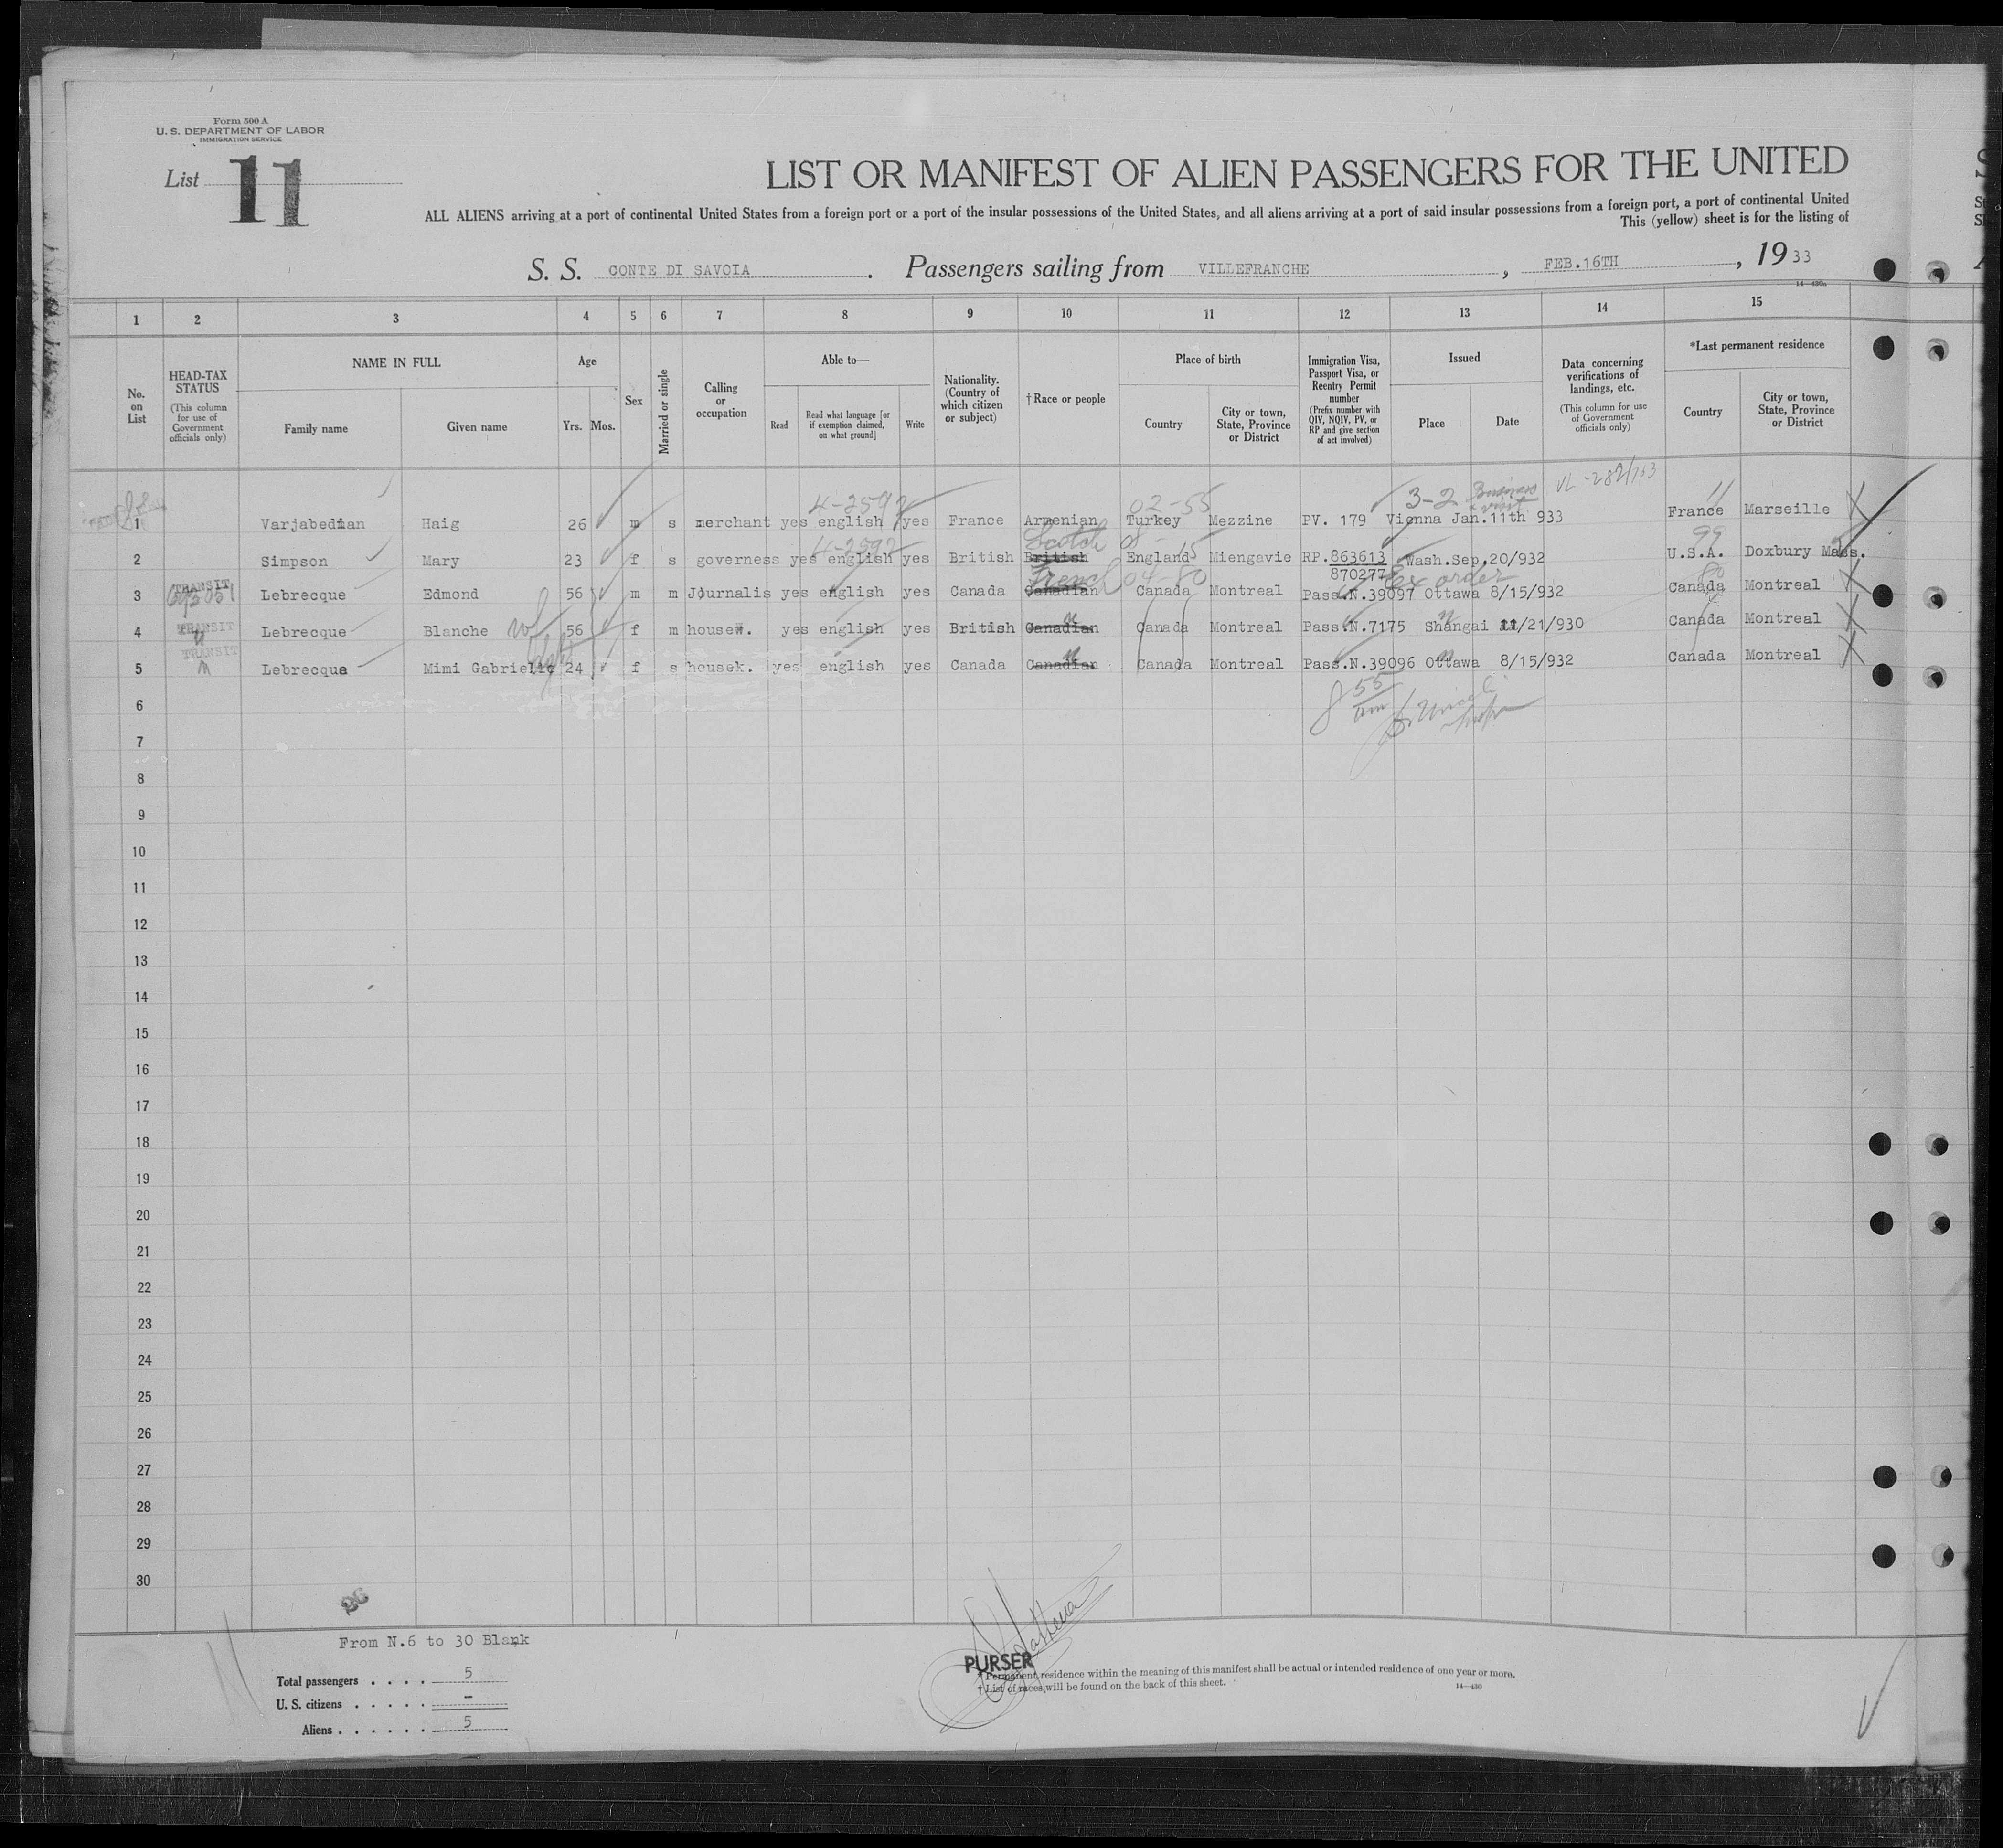 Form 500 A
U. S. DEPARTMENT OF LABOR
IMMIGRATION SERVICE
List 11
LIST OR MANIFEST OF ALIEN PASSENGERS FOR THE UNITED
ALL ALIENS arriving at a port of continental United States from a foreign port or a port of the insular possessions of the United States, and all aliens arriving at a port of said insular possessions from a foreign port, a port of continental United
This (yellow) sheet is for the listing of
S. S. CONTE DI SAVOIA . Passengers sailing from VILLEFRANCHE , FEB.16TH , 19 33
14—430a
1 2 3 4 5 6 7 8 9 10 11 12 13 14 15
No. on List
HEAD-TAX STATUS (This column for use of Government officials only)
NAME IN FULL
Family name Given name
Age
Yrs. Mos.
Sex
Married or single
Calling or occupation
Able to—
Read Read what language [or if exemption claimed, on what ground] Write
Nationality. (Country of which citizen or subject)
†Race or people
Place of birth
Country City or town, State, Province or District
Immigration Visa, Passport Visa, or Reentry Permit number (Prefix number with QIV, NQIV, PV, or RP and give section of act involved)
Issued
Place Date
Data concerning verifications of landings, etc. (This column for use of Government officials only)
*Last permanent residence
Country City or town, State, Province or District
4-2592 02-55 3-2 Business visit VL-282/153 11
1 Varjabedian Haig 26 m s merchant yes english yes France Armenian Turkey Mezzine PV. 179 Vienna Jan.11th 933 France Marseille
4-2592 Scotch 08- 15 99
2 Simpson Mary 23 f s governess yes english yes British British England Miengavie RP.863613 Wash.Sep.20/932 U.S.A. Doxbury Mass.
870277
TRANSIT French 04-80 Ex order 80
3 Lebrecque Edmond 56 m m Journalis yes english yes Canada Canadian Canada Montreal Pass.N.39097 Ottawa 8/15/932 Canada Montreal
TRANSIT
4 Lebrecque Blanche wf 56 f m housew. yes english yes British Canadian Canada Montreal Pass.N.7175 Shangai 11/21/930 Canada Montreal
TRANSIT
5 Lebrecque Mimi Gabrielle 24 f s housek. yes english yes Canada Canadian Canada Montreal Pass.N.39096 Ottawa 8/15/932 Canada Montreal
8 55 am
6
7
8
9
10
11
12
13
14
15
16
17
18
19
20
21
22
23
24
25
26
27
28
29
30
26
From N.6 to 30 Blank
Total passengers . . . . 5
U. S. citizens . . . . . -
Aliens . . . . . . 5
PURSER
* Permanent residence within the meaning of this manifest shall be actual or intended residence of one year or more.
† List of races will be found on the back of this sheet.
14—430